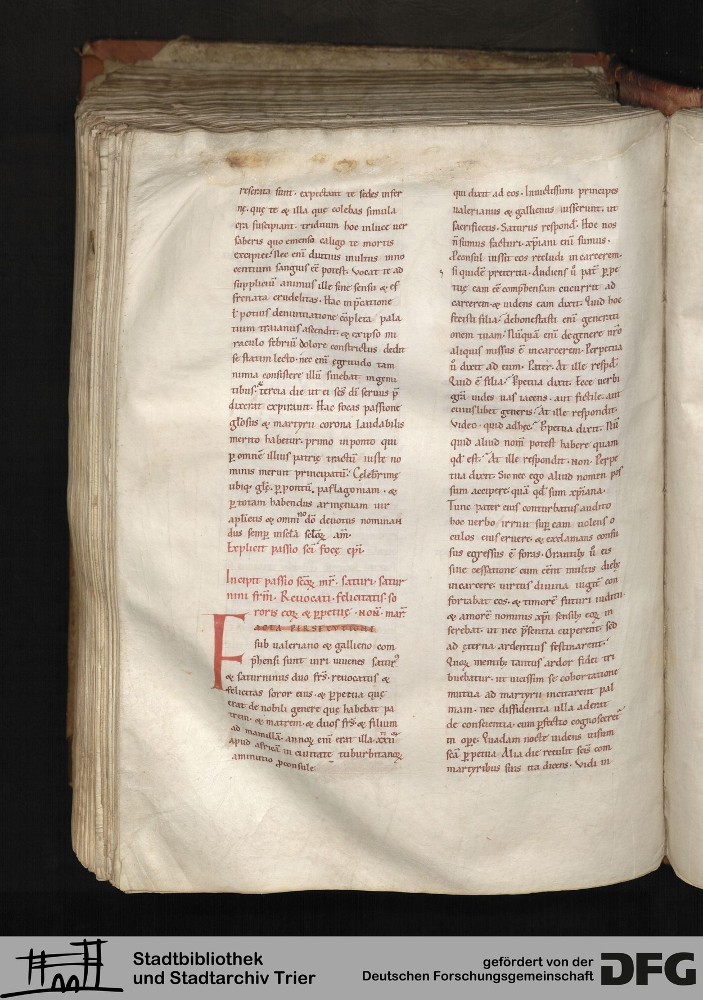 reseruata sunt. expectant te sedes infer
ne. que te & illa que colebas simula
cra suscipiant. triduum hoc in luce uer
saberis quo emenso. caligo te mortis
excipiet. Nec enī diutius inultus inno
centium sanguis eē potest. Vocat te ad
suppliciū animus ille sine sensu & ef
frenata crudelitas. Hac inp̄catione
ł potius denuntiatione cōpleta pala
tium traianus ascendit. & ex ipso mi
raculo febriū dolore constrictus dedit
se statim lecto. nec enī egrundo tam
nimia consistere illū sinebat in geni
tibus. tercia die ut ei scs dī seruus p̄
dixerat expirauit. Hac focas passione
glosus & martyrii corona laudabilis
merito habetur. primo in ponto qui
ꝑ omnē illius patrie tractū iuste no
minis meruit principatū. Celebrime
ubiq. gle. ꝑ pontū. paflagoniam. &
ꝑ totam habendus armeniam uir
aplicus & omni dō deuotus nominan
dus semꝑ in secla seloꝝ. am.
Explicit passio sci foce epi.
Incipit passio scōꝝ mr̄. saturi. satur
nini frm̄. Reuocati. felicitatis so
roris eoꝝ & ꝑpetue. Non. mar.
FACTA PERSECVTIONE
sub ualeriano & gallieno com
p̄hensi sunt uiri iuuenes satur'
& saturninus duo frs̄. reuocatus &
felicitas soror eius. & ꝑpetua que
erat de nobili genere que habebat pa
trem. & matrem. & duos frs̄ & filium
ad mamillā. annoꝝ enī erat illa. xxii
apud africā in ciuitate tuburbitanoꝝ
aminutio ꝓconsule
qui dixit ad eos. Inuictissimi principes
ualerianus & gallienus iusserunt. ut
sacrificetis. Saturus respond. Hoc nos
n̄ sumus facturi. xp̄iani enī sumus.
ꝓconsul iussit eos recludi in carcerem.
si quidē preterita. Audiens ū pat' ꝑpe
tue eam eē compħensam cucurrit ad
carcerem & uidens eam dixit. Quid hoc
fecisti filia. dehonestasti enī generati
onem tuam. Nūquā enī de genere nr̄o
aliquis missus ē in carcerem. Perpetua
ū dixit ad eum. Pater. At ille respd.
Quid ē filia. Ꝑpetua dixit. Ecce uerbi
grā uides uas iacens. aut fictile. aut
cuiuslibet generis. At ille respondit.
Video. quid adhec. Ꝑpetua dixit. Nū
quid aliud nom̄ potest habere quam
qd' est. At ille respondit. Non. Perpe
tua dixit. Sic nec ego aliud nomen pos
sum accipere quā qd' sum xp̄iana.
Tunc pater eius conturbatus audito
hoc uerbo. irruit suꝑ eam. uolens o
culos eius eruere. & exclamans confu
sus egressus ē foras. Orantib; ū eis
sine cessatione cum eēnt multis dieb;
in carcere uirtus diuina iugit' con
fortabat eos. & timorē futuri iudicii
& amorē nominis xp̄i sensib; eoꝝ in
serebat. ut nec p̄sentia cuperent. sed
ad eterna ardentius festinarent.
Quoꝝ mentib; tantus ardor fidei tri
buebatur. ut uicissim se cohortatione
mutua ad martyrii incitarent pal
mam. nec diffidentia ulla aderat
de conscientia. cum ꝓfecto cognosceret'
in ope. Quadam nocte uidens uisum
scā ꝑpetua. Alia die retulit scis com
martyribus suis ita dicens. Vidi in
Stadtbibliothek
und Stadtarchiv Trier
gefördert von der
Deutschen Forschungsgemeinschaft
DFG